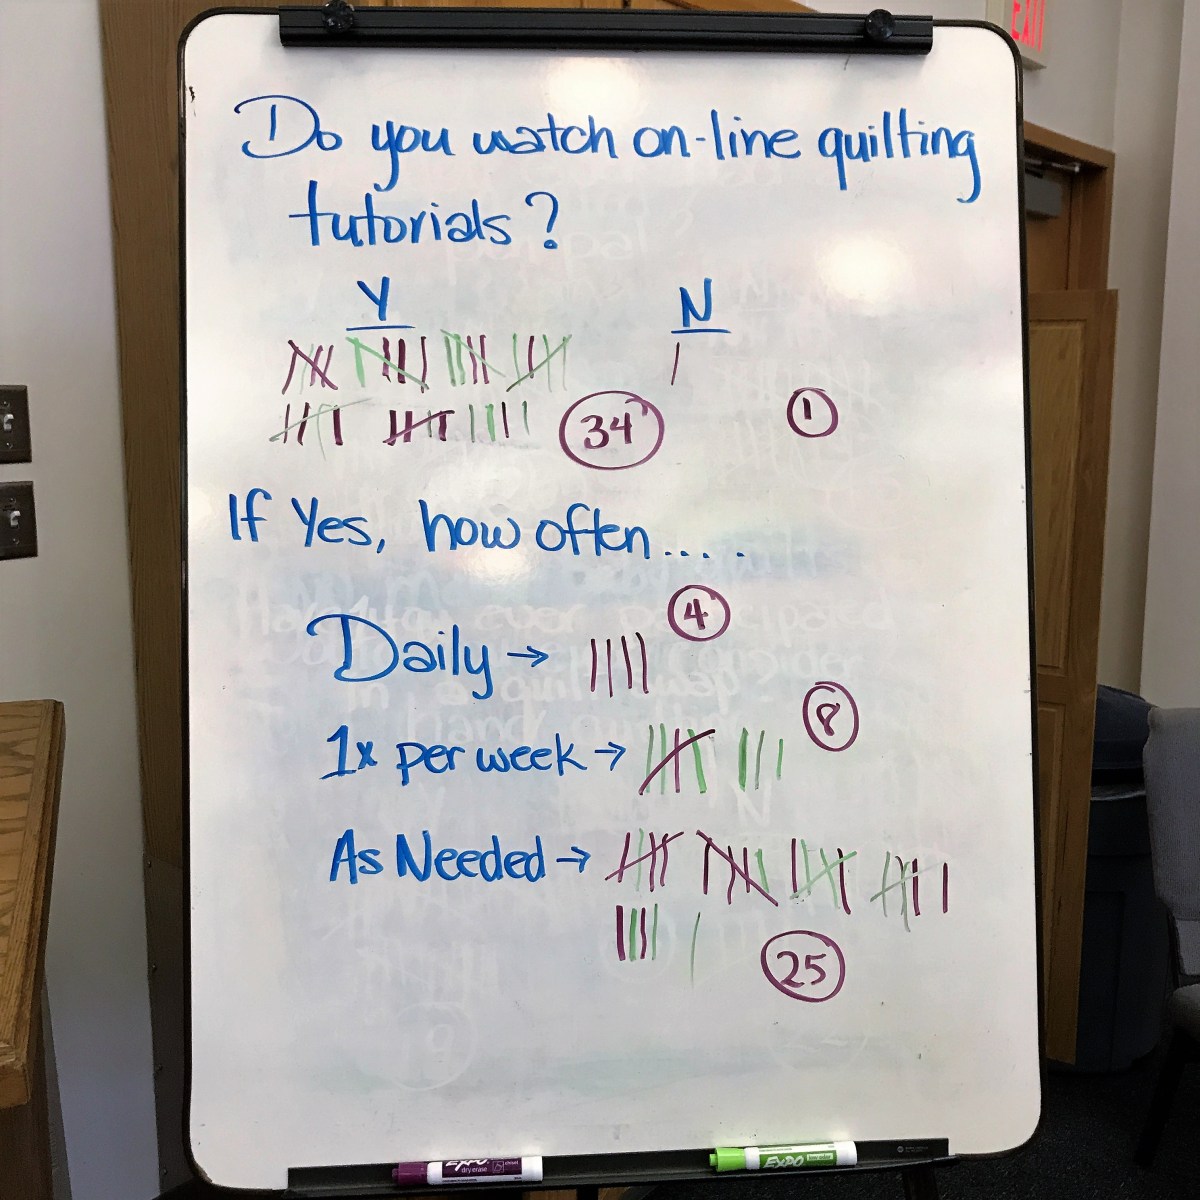 EXIT
Do you watch on-line quilting
tutorials?
Y N
34 1
If Yes, how often.....
4
Daily →
8
1x per week →
As Needed →
25
EXPO
dry erase
EXPO